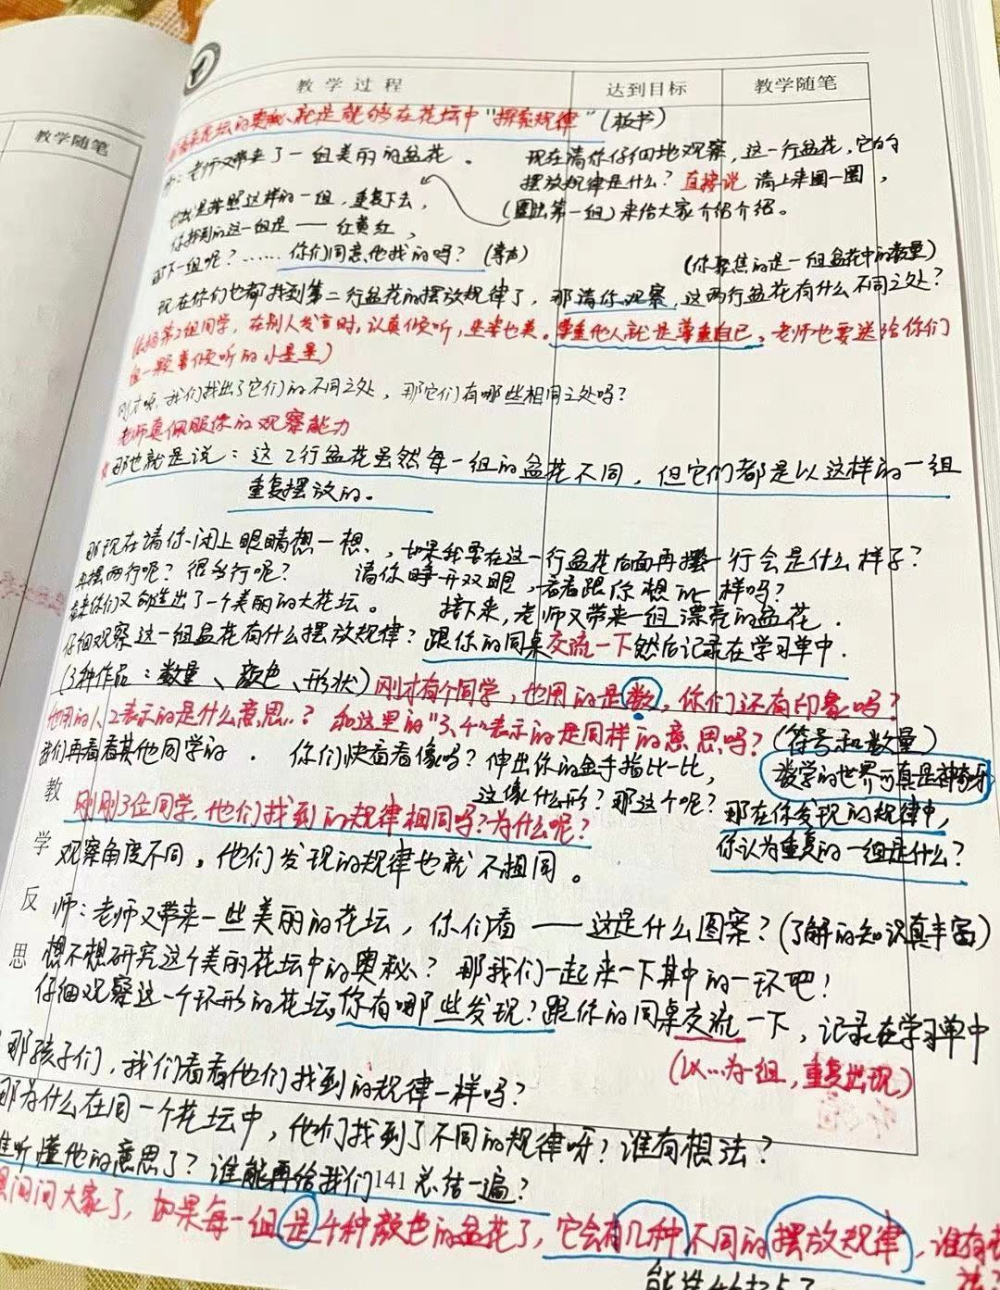 教学随笔
教学过程 达到目标 教学随笔
花坛的奥秘、就是能够在花坛中"探索规律"(板书)
老师又带来了一组美丽的盆花。 现在请你仔细地观察,这一行盆花,它的
摆放规律是什么?直接说 请上来圈一圈,
也就是按照这样的一组,重复下去, (圈出第一组)来给大家介绍介绍。
你找到的这一组是——红黄红,
下一组呢?……你们同意他找的吗?(掌声) (你聚焦的是一组盆花中的数量)
现在你们也都找到第二行盆花的摆放规律了,那请你观察,这两行盆花有什么不同之处?
第2组同学,在别人发言时,认真倾听,坐姿也美。尊重他人就是尊重自己,老师也要送给你们
一颗会倾听的小星星)
刚才呀,我们找出了它们的不同之处,那它们有哪些相同之处吗?
老师真佩服你的观察能力
那也就是说:这2行盆花虽然每一组的盆花不同,但它们都是以这样的一组
重复摆放的。
那现在请你闭上眼睛想一想,如果我要在这一行盆花后面再摆一行会是什么样子?
再摆两行呢?很多行呢? 请你睁开双眼,看看跟你想的一样吗?
看来你们又创造出了一个美丽的大花坛。 接下来,老师又带来一组漂亮的盆花.
仔细观察这一组盆花有什么摆放规律?跟你的同桌交流一下然后记录在学习单中.
(3种作品:数量、颜色、形状)刚才有个同学,也用的是数,你们还有印象吗?
他用的1、2表示的是什么意思..?和这里的"3、4"表示的是同样的意思吗?(符号和数量)
我们再看看其他同学的. 你们快看看像吗?伸出你的金手指比一比,
数学的世界可真是神奇呀
这像什么形?那这个呢?那在你发现的规律中,
刚刚3位同学,他们找到的规律相同吗?为什么呢?
你认为重复的一组是什么?
教学反思
观察角度不同。他们发现的规律也就不相同。
师:老师又带来一些美丽的花坛,你们看——这是什么图案?(了解的知识真丰富)
想不想研究这个美丽花坛中的奥秘?那我们一起来一下其中的一环吧!
仔细观察这一个环形的花坛,你有哪些发现?跟你的同桌交流一下,记录在学习单中
(以…为一组,重复出现)
那孩子们,我们看看他们找到的规律一样吗?
那为什么在同一个花坛中,他们找到了不同的规律呀?谁有想法?
谁听懂他的意思了?谁能再给我们141总结一遍?
问问大家了,如果每一组是4种颜色的盆花了,它会有几种不同的摆放规律,谁有
法?